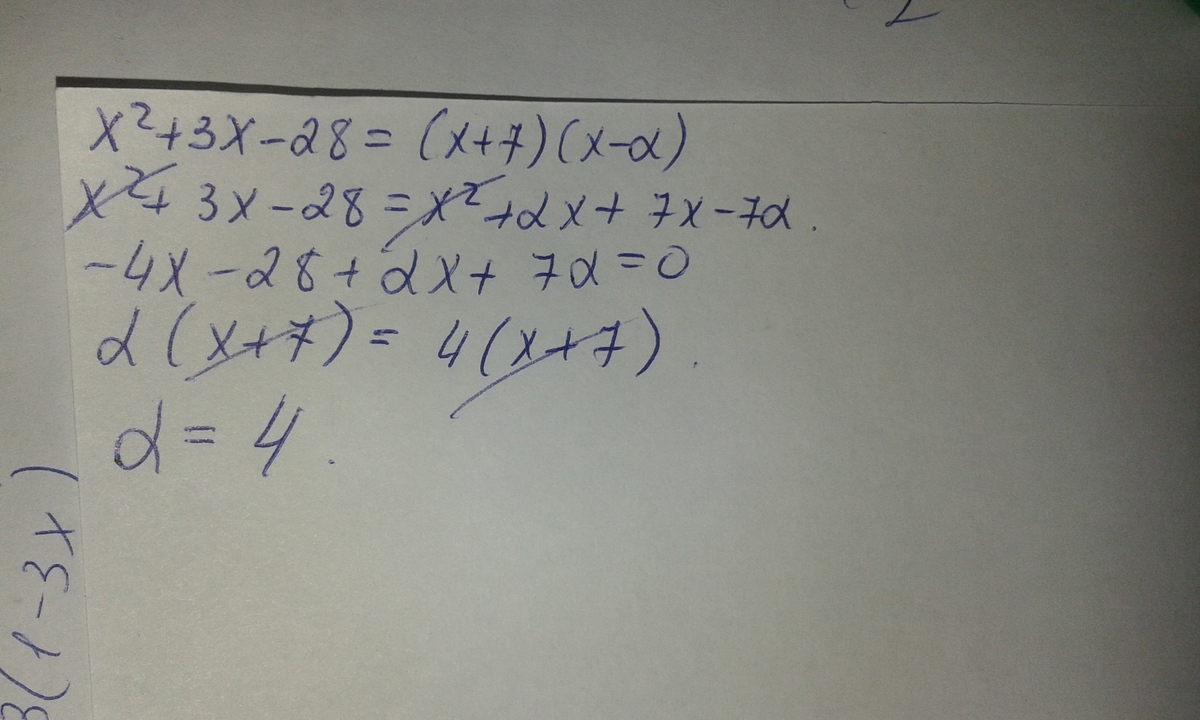 2
x²+3x-28=(x+7)(x-α)
x²+3x-28=x²+αx+7x-7α.
-4x-28+αx+7α=0
α(x+7)=4(x+7).
α=4.
3(1-3x)